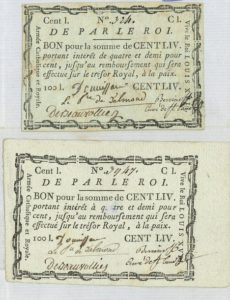 Cent l. Nº. 324. C l.
DE PAR LE ROI.
BON pour la somme de CENT LIV.
portant interet de quatre et demi pour
cent, jusqu'au remboursement qui sera
effectué sur le trésor Royal, à la paix.
100 l. CENT LIV.
Armée Catholique et Royale.
Vive le Roi LOUIS
Cent l. Nº. 3947. C l.
DE PAR LE ROI.
BON pour la somme de CENT LIV.
portant intérêt à quatre et demi pour
cent, jusqu'au remboursement qui sera
effectué sur le trésor Royal, à la paix.
100 l. CENT LIV.
Armée Catholique et Royale.
Vive le Roi LOUIS